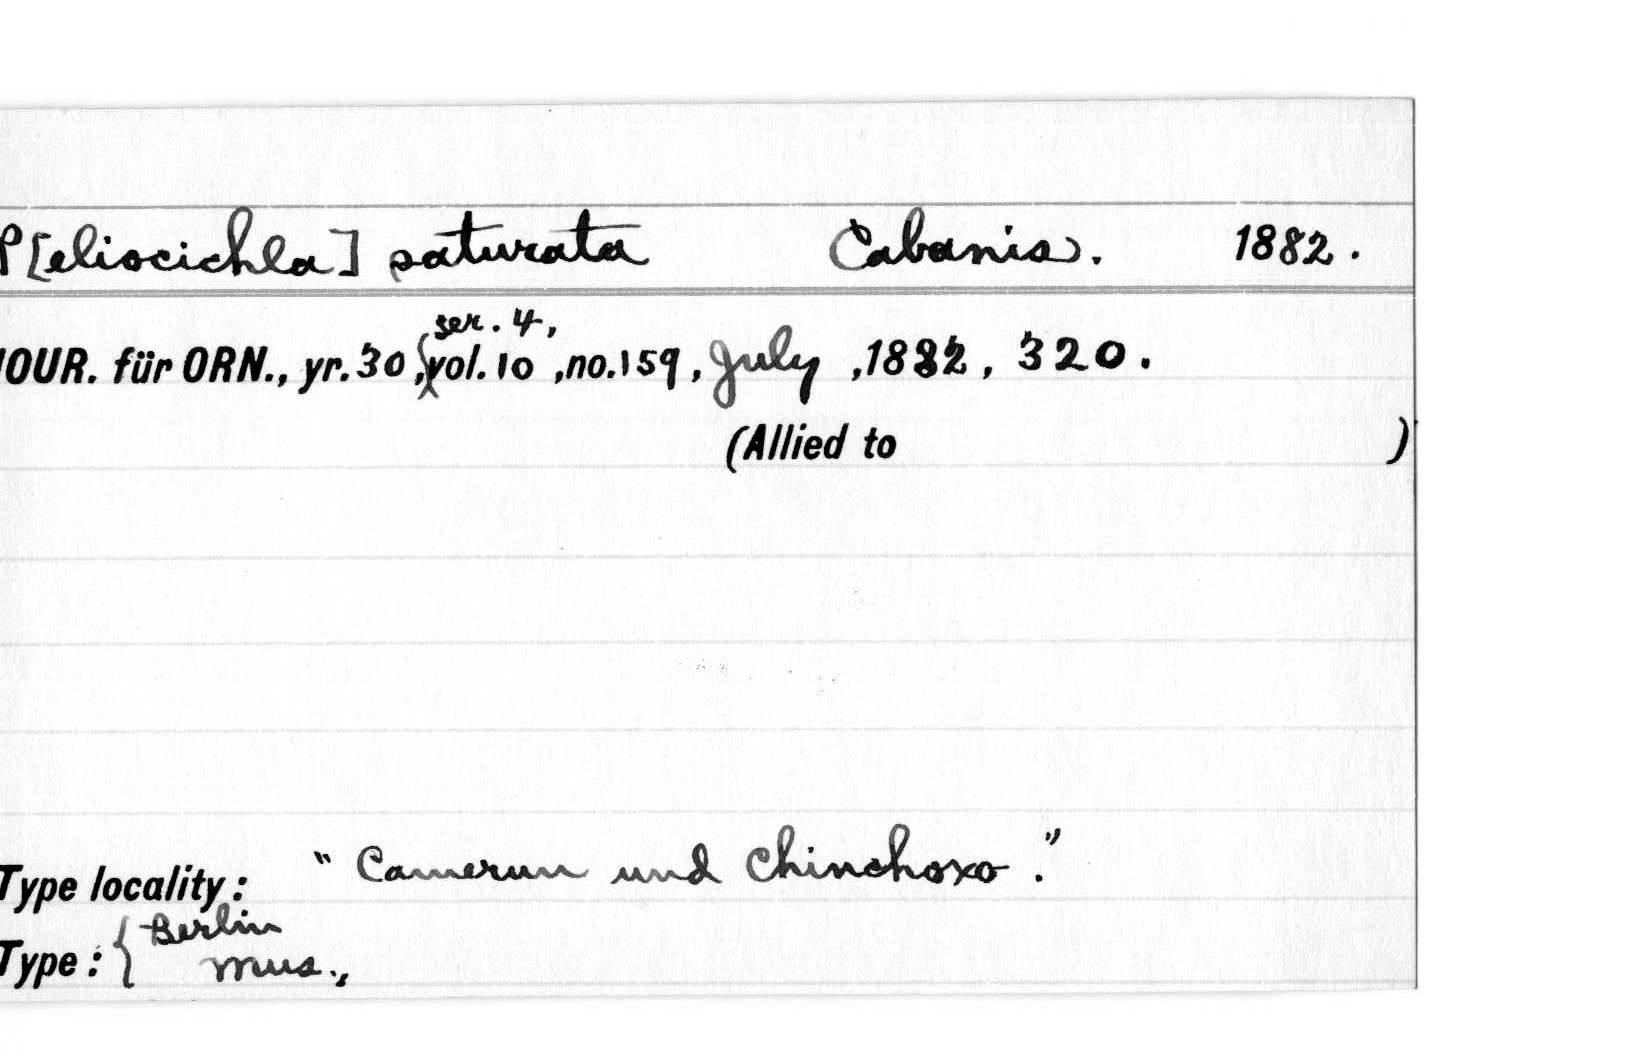 P[eliocichla] saturata Cabanis. 1882.
ser. 4,
JOUR. für ORN., yr. 30, vol. 10, no. 159, July, 1882, 320.
(Allied to )
Type locality: "Camerun und Chinchoxo."
Type: { Berlin
Mus.,